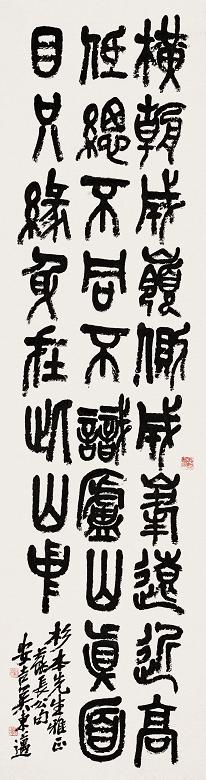 橫看成嶺側成峯遠近高
低總不同不識廬山真面
目只緣身在此山中
杉本先生雅正
蘇長公句
安吉吳東邁